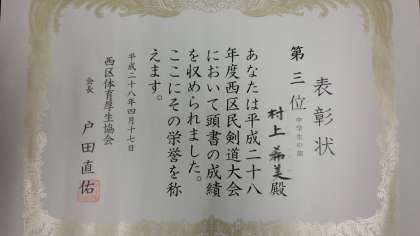 表彰状
第三位
中学生の部
村上希美殿
あなたは平成二十八
年度西区民剣道大会
において頭書の成績
を収められました。
ここにその栄誉を称
えます。
平成二十八年四月十七日
西区体育厚生協会
会長 戸田直佑